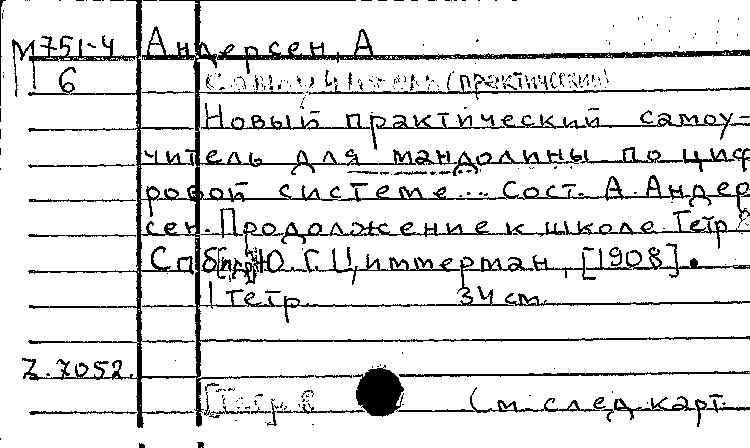 М751-4 Андерсен, А
6 Самоучитель (практический)
Новый практический самоу-
читель для мандолины по циф
ровой системе... Сост. А. Андер
сен. Продолжение к школе. Тетр 8
Спб Ю. Г. Циммерман, [1908].
1 тетр. 34 cm.
Z.7052.
[Тетр 8 См. след карт.